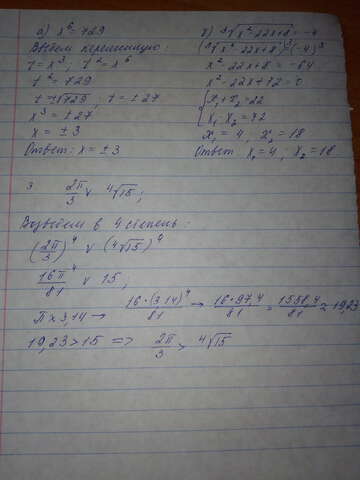 а) x⁶ = 729
Введем переменную:
t = x³; t² = x⁶
t² = 729
t = ±√729; t = ±27
x³ = ±27
x = ±3
Ответ: x = ±3
³√(x²-22x+8) = -4
(³√(x²-22x+8))³ = (-4)³
x² - 22x + 8 = -64
x² - 22x + 72 = 0
{ x₁ + x₂ = 22
x₁ · x₂ = 72
x₁ = 4, x₂ = 18
Ответ x₁ = 4; x₂ = 18
3 2π/3 v ⁴√15;
Возведем в 4 степень:
(2π/3)⁴ v (⁴√15)⁴
16π⁴/81 v 15;
π ≈ 3,14 → 16·(3,14)⁴/81 → 16·97,4/81 = 1558,4/81 ≈ 19,23
19,23 > 15 => 2π/3 > ⁴√15